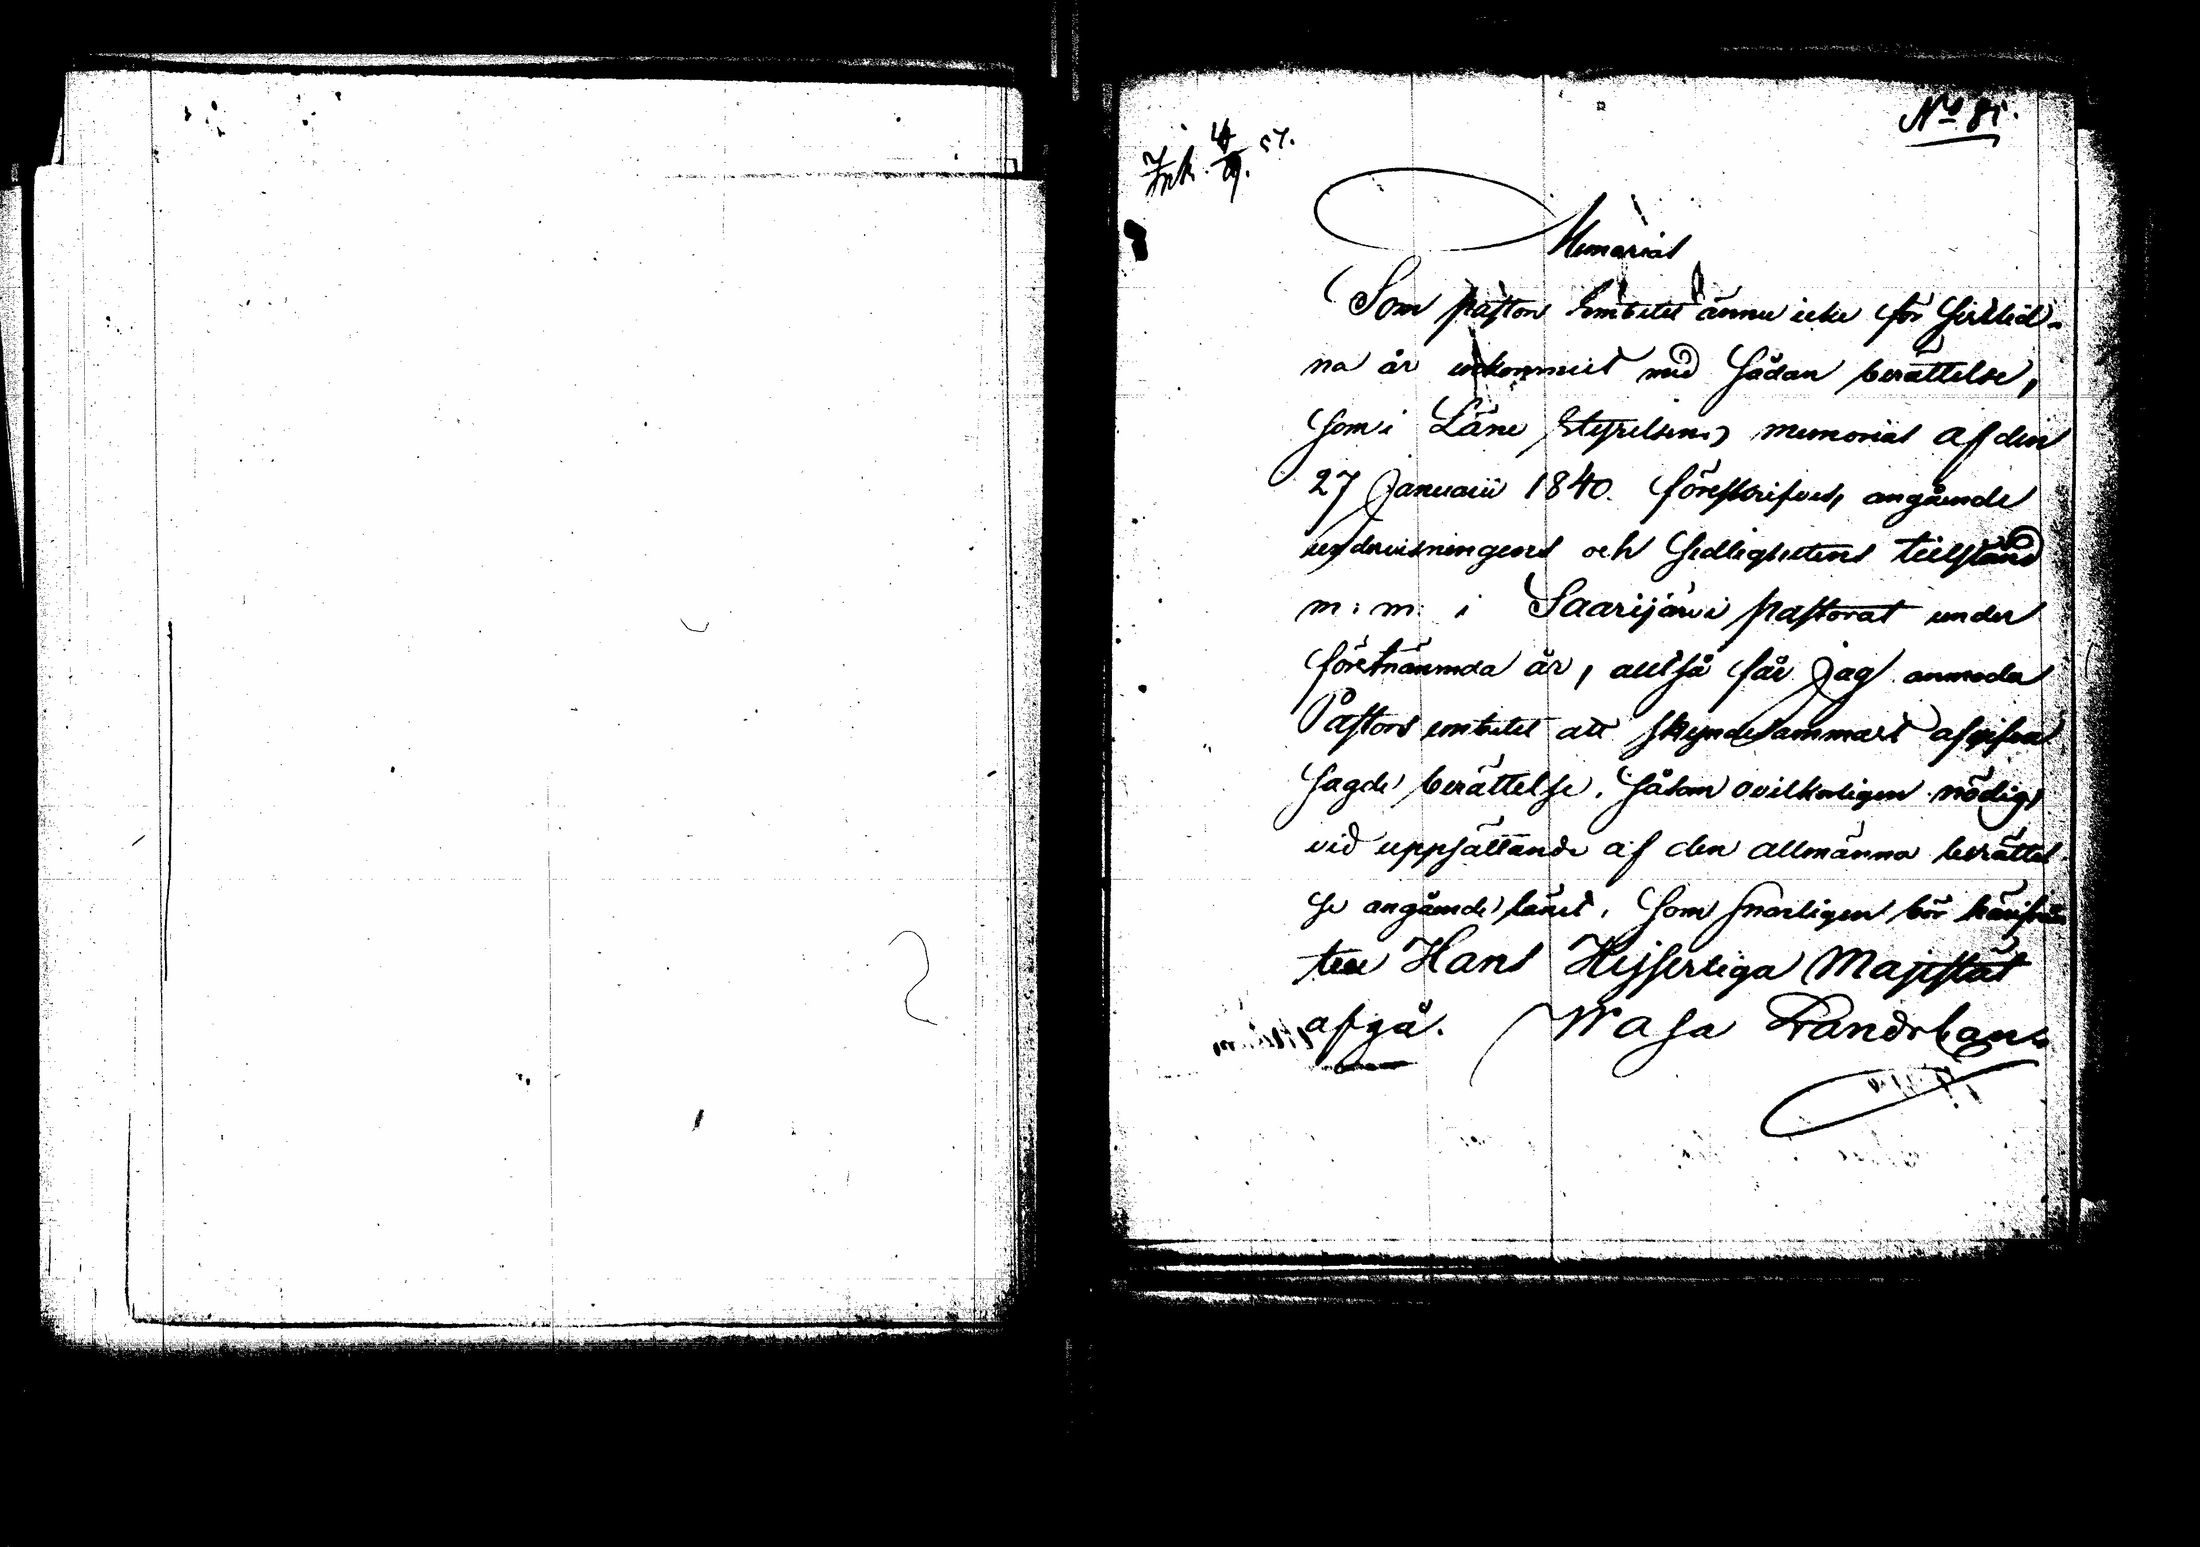 No 81.
Ink. 4/9. 57.
Memorial
Som pastors Embetet ännu icke för sistlid-
na år inkommit med sådan berättelse,
som i Läne Styrelsens memorial af den
27 Januarii 1840 föreskrifves, angående
undervisningens och sedlighetens tillstånd
m: m: i Saarijärvi pastorat under
förstnämnda år, alltså får jag anmoda
Pastors embetet att skyndesammast afgifva
sagde berättelse, såsom ovilkorligen nödig
vid uppsättande af den allmänna berättel-
se angående länet, som snarligen bör härifrån
till Hans Kejserliga Majestät
afgå. Wasa Landskans-